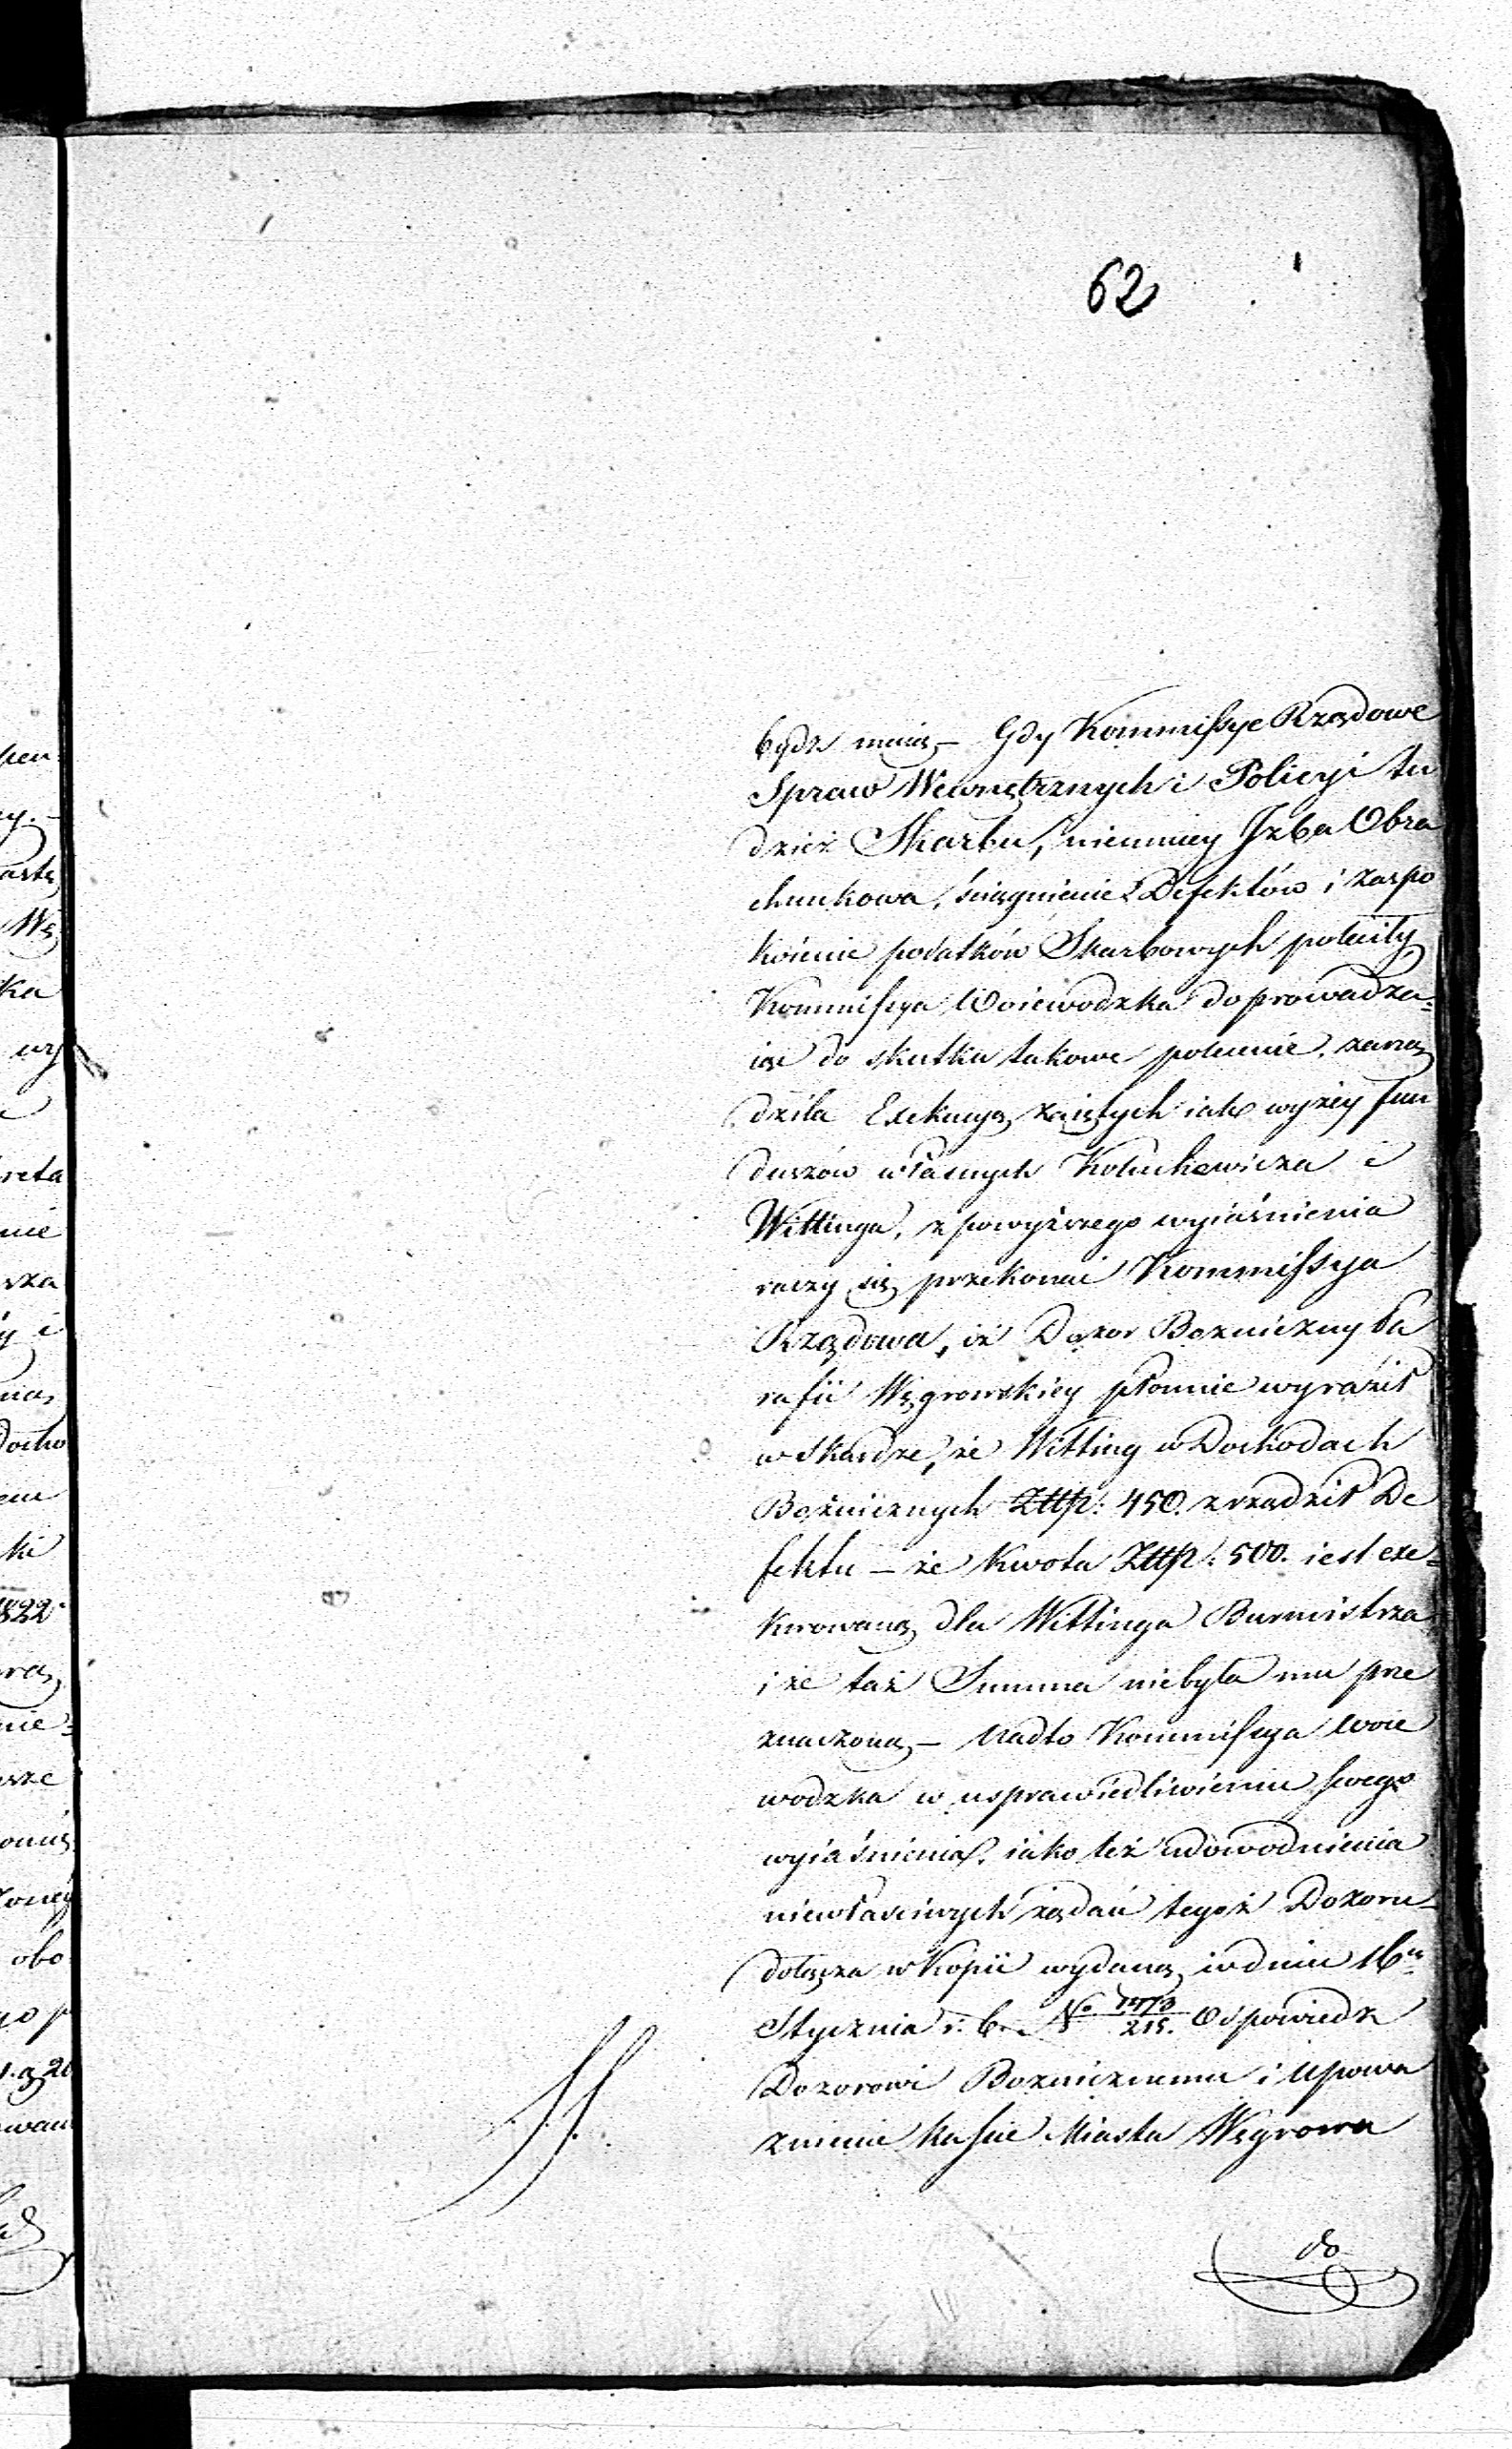 62
bydź maią – Gdy Kommissye Rządowe
Spraw Wewnętrznych i Policyi tu
dzież Skarbu, niemniey Jzba Obra
chunkowa, ściągnienie Defektów i zaspo
koienie podatków Skarbowych poleciły
Kommissya Woiewodzka doprowadza-
iąc do skutku takowe polecenie, zarzą
dziła Exekucyą zaiętych iak wyżey fun
duszów własnych Kotuchowicza i
Wittinga, z powyższego wyiaśnienia
raczy się przekonać Kommissya
Rządowa, iż Dozor Bozniczny Pa
rafii Węgrowskiey płonnie wyraźił
w Skardze, że Witting w Dochodach
Bożnicznych Złtp: 450. zrządził De
fektu – że Kwota Złtp: 500. iest exe-
kwowaną dla Wittinga Burmistrza
i że taż Summa niebyła mu prze
znaczoną – Nadto Kommissya Woie
wodzka w usprawiedliwieniu swego
wyiaśnienia, iako też udowodnienia
niewłaściwych żądań tegoż Dozoru
dołącza w Kopii wydaną w dniu 16
Stycznia r. b. No 215. Odpowiedz
Dozorowi Boznicznemu i Upowa
znienie Kassie Miasta Węgrowa
do